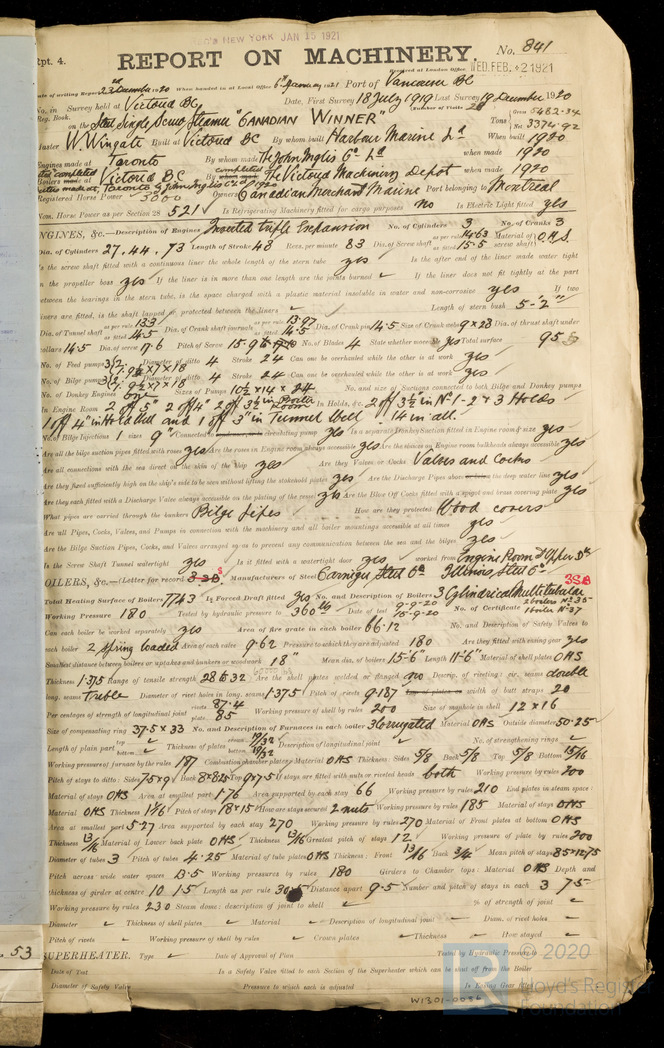 NEW YORK JAN 15 1921
Rpt. 4. REPORT ON MACHINERY. No. 841
Received at London Office WED. FEB. 2 1921
Date of writing Report 23rd December 1920 When handed in at Local Office 6th January 1921 Port of Vancouver BC
No. in Survey held at Victoria BC Date, First Survey 18 July 1919 Last Survey 19 December 1920
Reg. Book. (Number of Visits 28
on the Steel Single Screw Steamer "CANADIAN WINNER" Tons Gross 5482.34 Net 3374.92
Master W. Wingate Built at Victoria BC By whom built Harbour Marine Ld When built 1920
Engines made at Toronto By whom made The John Inglis Co Ld when made 1920
Boilers made at Victoria BC By whom made completed The Victoria Machinery Depot when made 1920
Registered Horse Power 3000 Owners Canadian Merchant Marine Port belonging to Montreal
Nom. Horse Power as per Section 28 521 Is Refrigerating Machinery fitted for cargo purposes no Is Electric Light fitted yes
ENGINES, &c.—Description of Engines Inverted triple Expansion No. of Cylinders 3 No. of Cranks 3
Dia. of Cylinders 27, 44, 73 Length of Stroke 48 Revs. per minute 83 Dia. of Screw shaft as per rule 14.63 as fitted 15.5 Material of screw shaft O.H.S.
Is the screw shaft fitted with a continuous liner the whole length of the stern tube yes Is the after end of the liner made water tight
in the propeller boss yes If the liner is in more than one length are the joints burned ✓ If the liner does not fit tightly at the part
between the bearings in the stern tube, is the space charged with a plastic material insoluble in water and non-corrosive yes If two
liners are fitted, is the shaft lapped or protected between the liners ✓ Length of stern bush 5-2"
Dia. of Tunnel shaft as per rule 13.3 as fitted 14.5 Dia. of Crank shaft journals as per rule 13.97 as fitted 14.5 Dia. of Crank pin 14.5 Size of Crank webs 9 x 28 Dia. of thrust shaft under
collars 14.5 Dia. of screw 17.6 Pitch of Screw 15.9 No. of Blades 4 State whether moveable yes Total surface 95.5
No. of Feed pumps 3 Diameter of ditto 4 Stroke 24 Can one be overhauled while the other is at work yes
No. of Bilge pumps 3 Diameter of ditto 4 Stroke 24 Can one be overhauled while the other is at work yes
No. of Donkey Engines one Sizes of Pumps 10½ x 14 x 24 No. and size of Suctions connected to both Bilge and Donkey pumps
In Engine Room 2 off 5" 2 off 4" 2 off 3½ in Boiler Room In Holds, &c. 2 off 3½ in No 1-2 & 3 Holds
1 off 4" in Hold Well and 1 off 3" in Tunnel Well. 14 in all.
No. of Bilge Injections 1 sizes 9" Connected to circulating pump yes Is a separate Donkey Suction fitted in Engine room & size yes
Are all the bilge suction pipes fitted with roses yes Are the roses in Engine room always accessible yes Are the sluices on Engine room bulkheads always accessible yes
Are all connections with the sea direct on the skin of the ship yes Are they Valves or Cocks Valves and Cocks
Are they fixed sufficiently high on the ship's side to be seen without lifting the stokehold plates yes Are the Discharge Pipes above the deep water line yes
Are they each fitted with a Discharge Valve always accessible on the plating of the vessel yes Are the Blow Off Cocks fitted with a spigot and brass covering plate yes
What pipes are carried through the bunkers Bilge pipes How are they protected Wood covers
Are all Pipes, Cocks, Valves, and Pumps in connection with the machinery and all boiler mountings accessible at all times yes
Are the Bilge Suction Pipes, Cocks, and Valves arranged so as to prevent any communication between the sea and the bilges yes
Is the Screw Shaft Tunnel watertight yes Is it fitted with a watertight door yes worked from Engine Room & Upper Dk
BOILERS, &c.—(Letter for record S) Manufacturers of Steel Carnegie Steel Co Illinois Steel Co
Total Heating Surface of Boilers 7743 Is Forced Draft fitted yes No. and Description of Boilers 3 Cylindrical Multitubular 3SB
Working Pressure 180 Tested by hydraulic pressure to 360 lbs Date of test 9-9-20 15-9-20 No. of Certificate 2 boilers No 35 1 boiler No 37
Can each boiler be worked separately yes Area of fire grate in each boiler 66.12 No. and Description of Safety Valves to
each boiler 2 spring loaded Area of each valve 9.62 Pressure to which they are adjusted 180 Are they fitted with easing gear yes
Smallest distance between boilers or uptakes and bunkers or woodwork 18" Mean dia. of boilers 15-6" Length 11-6" Material of shell plates OHS
Thickness 1.375 Range of tensile strength 28 to 32 Are the shell plates welded or flanged no Descrip. of riveting: cir. seams double
long. seams treble Diameter of rivet holes in long. seams 1.375 Pitch of rivets 9.187 Lap of plates or width of butt straps 20
Per centages of strength of longitudinal joint rivets 87.4 plate 85 Working pressure of shell by rules 200 Size of manhole in shell 12 x 16
Size of compensating ring 37.5 x 33 No. and Description of Furnaces in each boiler 3 Corrugated Material OHS Outside diameter 50.25
Length of plain part top ✓ bottom Thickness of plates crown 19/32 bottom 19/32 Description of longitudinal joint ✓ No. of strengthening rings ✓
Working pressure of furnace by the rules 187 Combustion chamber plates: Material OHS Thickness: Sides 5/8 Back 5/8 Top 5/8 Bottom 15/16
Pitch of stays to ditto: Sides 7.5 x 9 Back 8 x 8.25 Top 9 x 7.5 If stays are fitted with nuts or riveted heads both Working pressure by rules 200
Material of stays OHS Area at smallest part 1.76 Area supported by each stay 66 Working pressure by rules 210 End plates in steam space:
Material OHS Thickness 1 1/16 Pitch of stays 18 x 15 How are stays secured 2 nuts Working pressure by rules 185 Material of stays OHS
Area at smallest part 5.27 Area supported by each stay 270 Working pressure by rules 270 Material of Front plates at bottom OHS
Thickness 13/16 Material of Lower back plate OHS Thickness 13/16 Greatest pitch of stays 12 Working pressure of plate by rules 200
Diameter of tubes 3 Pitch of tubes 4.25 Material of tube plates OHS Thickness: Front 13/16 Back 3/4 Mean pitch of stays 8.5 x 12.75
Pitch across wide water spaces 13.5 Working pressures by rules 180 Girders to Chamber tops: Material OHS Depth and
thickness of girder at centre 10 1.5 Length as per rule Distance apart 9.5 Number and pitch of stays in each 3 7.5
Working pressure by rules 230 Steam dome: description of joint to shell ✓ % of strength of joint ✓
Diameter ✓ Thickness of shell plates ✓ Material ✓ Description of longitudinal joint ✓ Diam. of rivet holes ✓
Pitch of rivets ✓ Working pressure of shell by rules ✓ Crown plates ✓ Thickness ✓ How stayed ✓
SUPERHEATER. Type ✓ Date of Approval of Plan Tested by Hydraulic Pressure to
Date of Test Is a Safety Valve fitted to each Section of the Superheater which can be shut off from the Boiler
Diameter of Safety Valve Pressure to which each is adjusted Is Easing Gear fitted
53
W1301-0036
© 2020
Lloyd's Register
Foundation